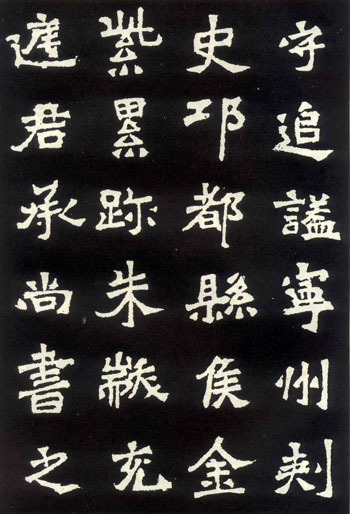 守追謚寧州刾
史邛都縣侯金
紫累跡朱黻充
庭君承尚書之